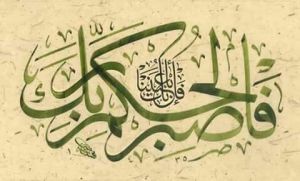 فاصبر لحكم ربك
فإنك بأعيننا